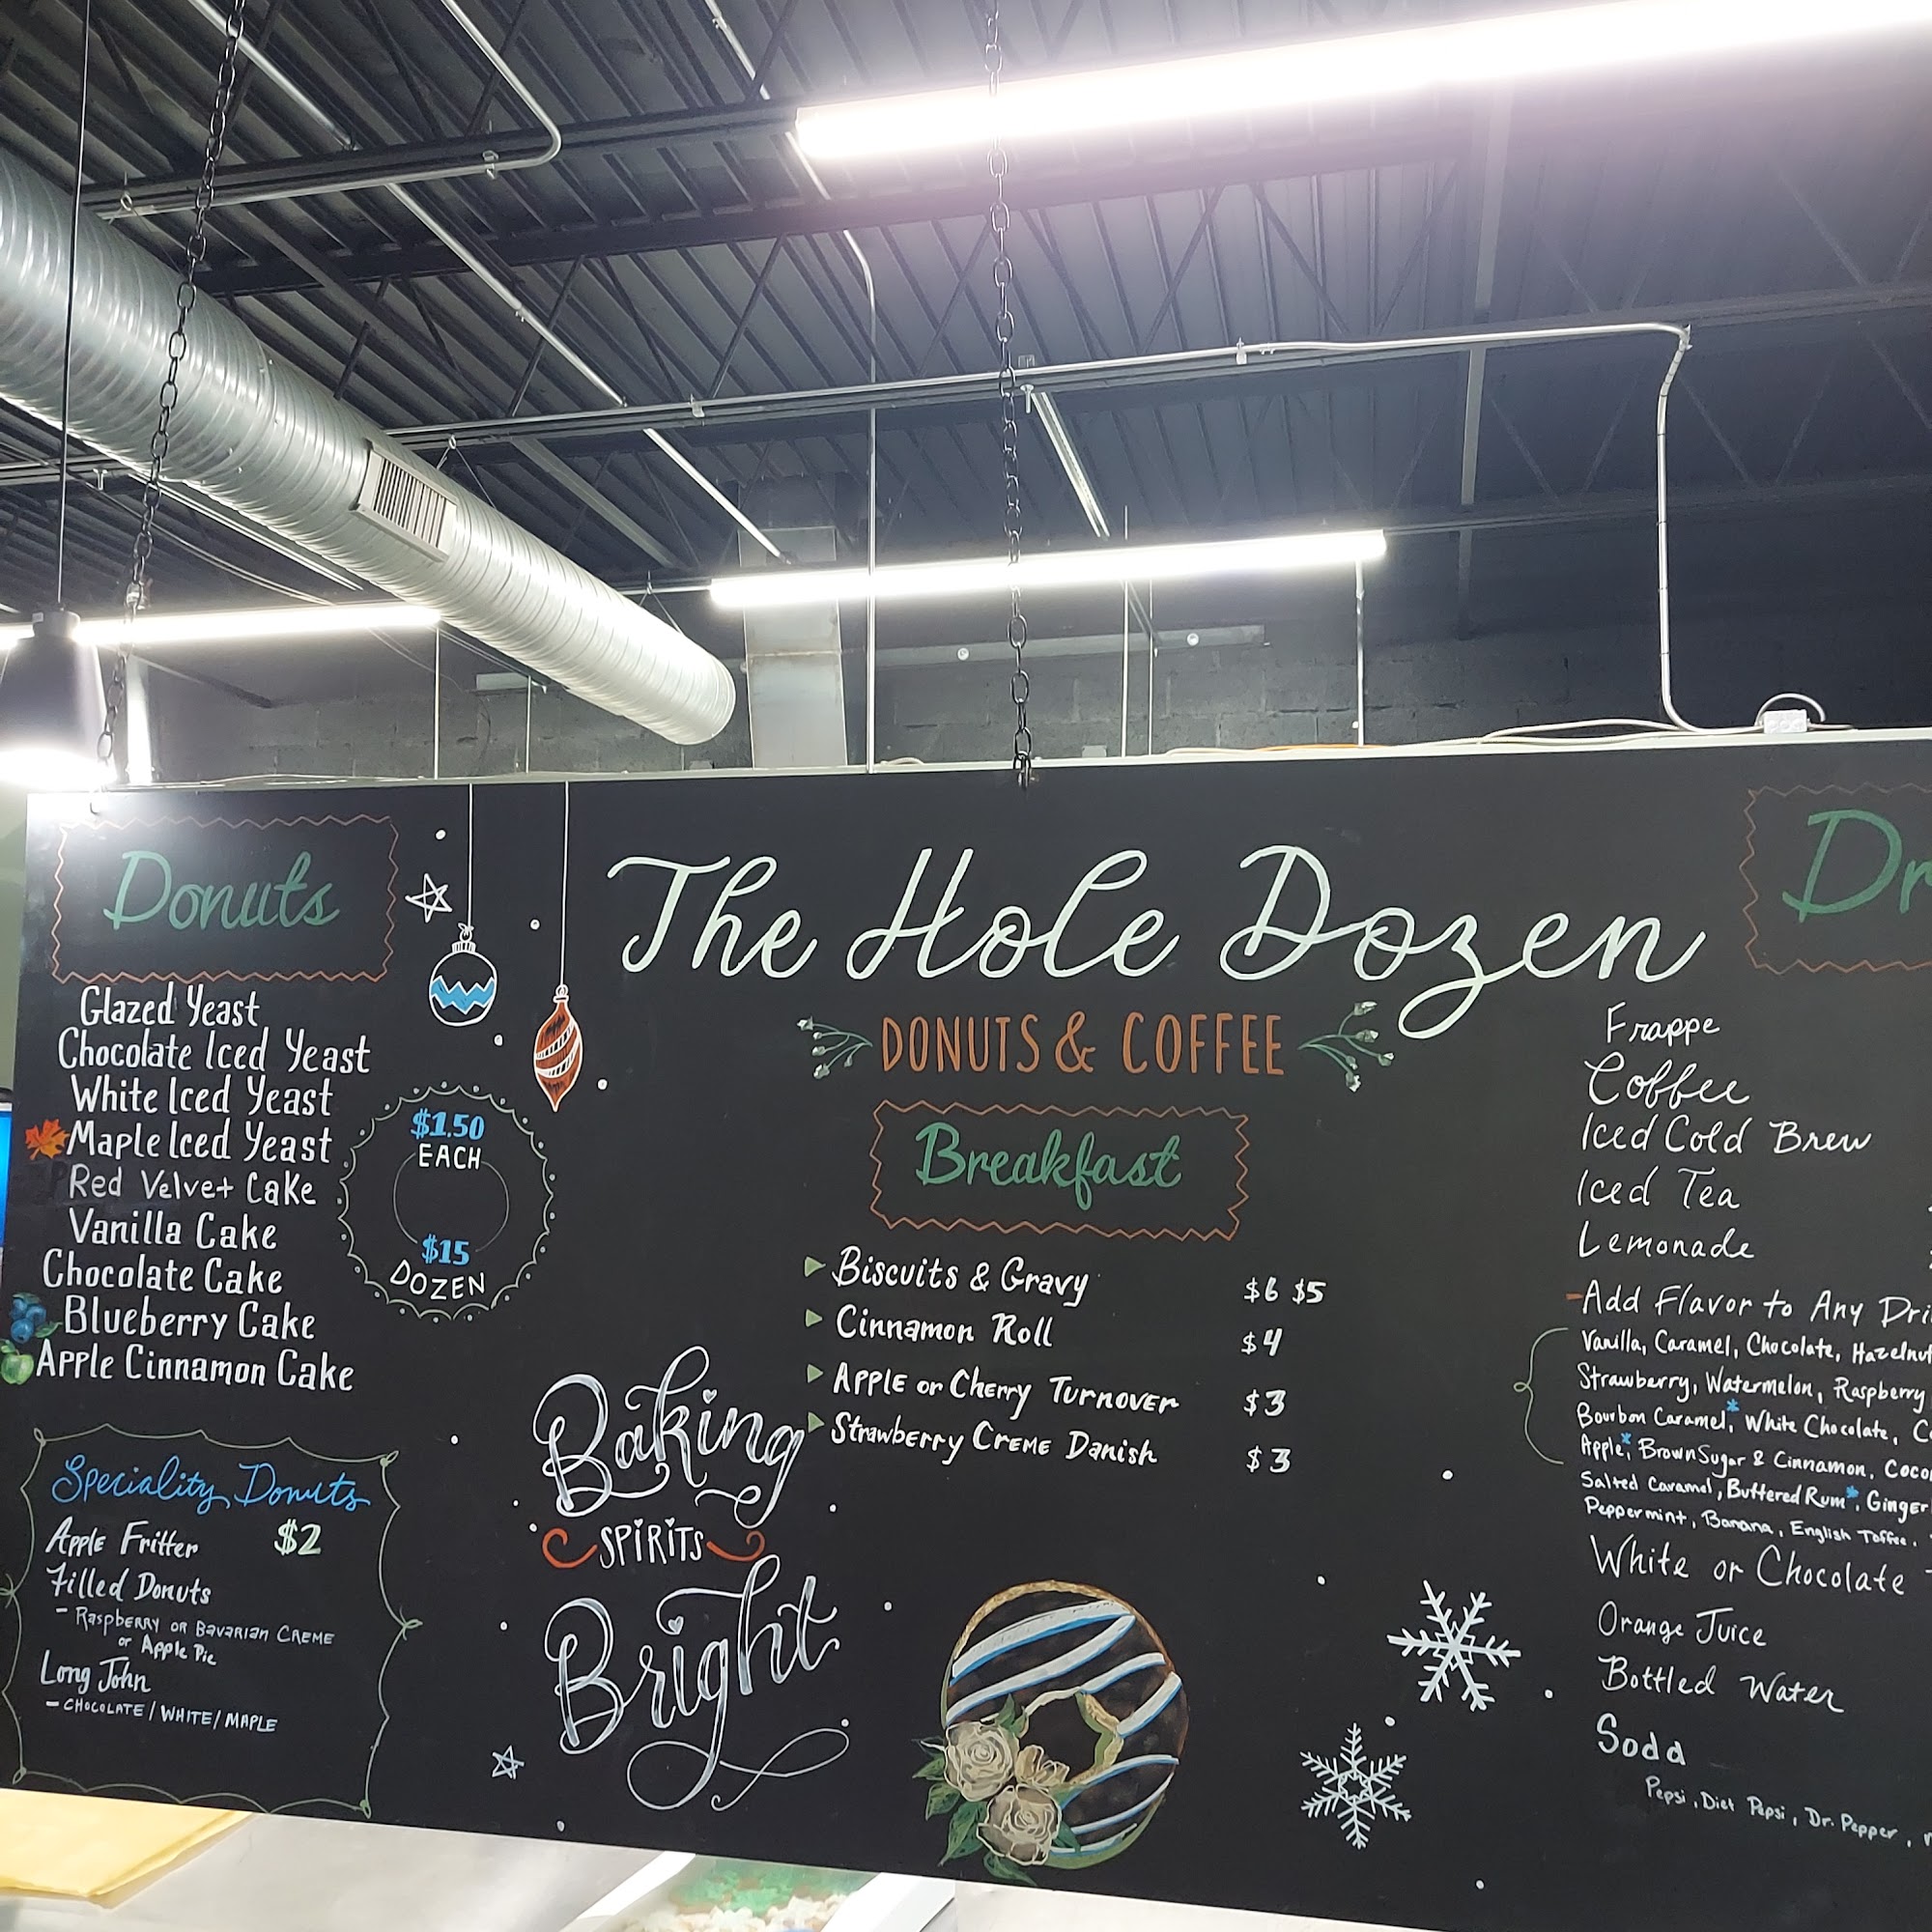 Donuts
Glazed Yeast
Chocolate Iced Yeast
White Iced Yeast
Maple Iced Yeast
Red Velvet Cake
Vanilla Cake
Chocolate Cake
Blueberry Cake
Apple Cinnamon Cake
$1.50
EACH
$15
DOZEN
Speciality Donuts
Apple Fritter $2
Filled Donuts
- Raspberry or Bavarian Creme
or Apple Pie
Long John
- Chocolate / White / Maple
The Hole Dozen
DONUTS & COFFEE
Breakfast
Biscuits & Gravy $6 $5
Cinnamon Roll $4
Apple or Cherry Turnover $3
Strawberry Creme Danish $3
Baking
SPIRITS
Bright
Frappe
Coffee
Iced Cold Brew
Iced Tea
Lemonade
-Add Flavor to Any
Vanilla, Caramel, Chocolate,
Strawberry, Watermelon, Raspberry
Bourbon Caramel,* White Chocolate,
Apple,* Brown Sugar & Cinnamon,
Salted Caramel, Buttered Rum*, Ginger
Peppermint, Banana, English Toffee.
White or Chocolate
Orange Juice
Bottled Water
Soda
Pepsi, Diet Pepsi, Dr. Pepper,